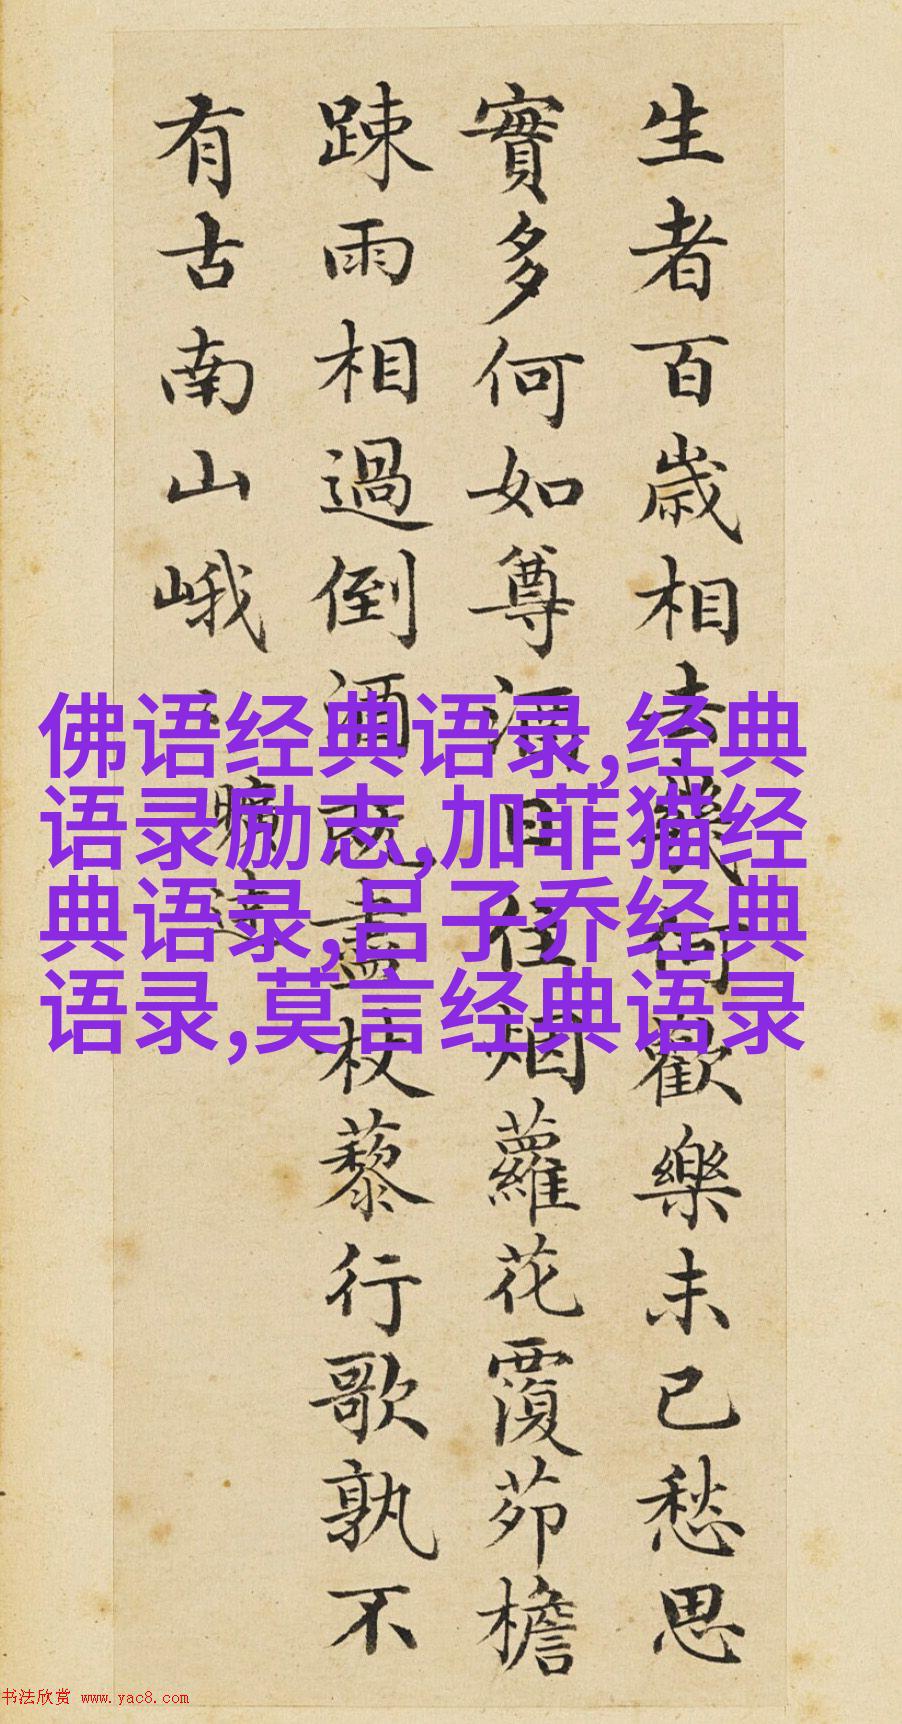 生者百歲相去幾何歡樂未已愁思
實多何如尊酒日往烟蘿花覆茆檐
踈雨相過倒酒既盡杖藜行歌孰不
有古南山峨〻
曠達
佛语经典语录,经典
语录励志,加菲猫经
典语录,吕子乔经典
语录,莫言经典语录
书法欣赏 www.yac8.com